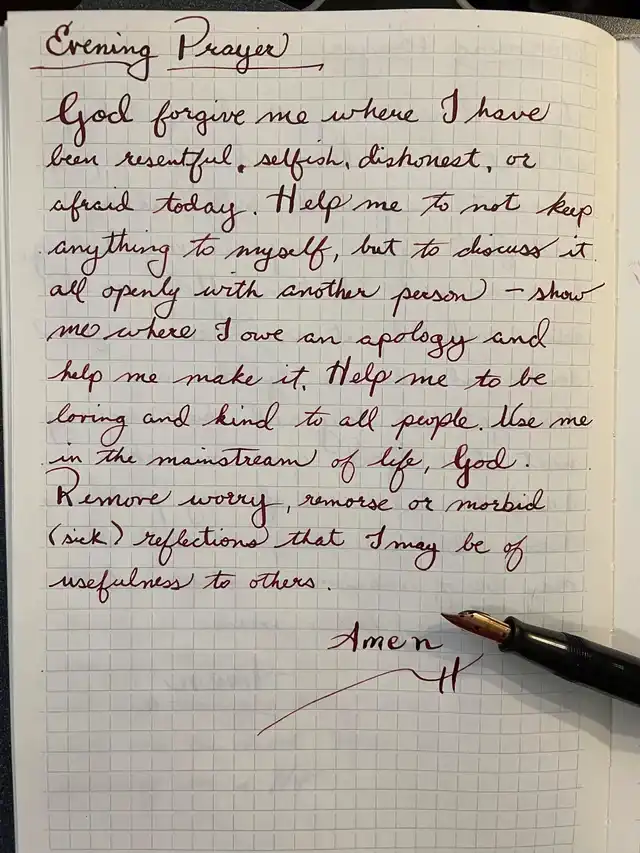 Evening Prayer
God forgive me where I have
been resentful, selfish, dishonest, or
afraid today. Help me to not keep
anything to myself, but to discuss it
all openly with another person - show
me where I owe an apology and
help me make it. Help me to be
loving and kind to all people. Use me
in the mainstream of life, God.
Remove worry, remorse or morbid
(sick) reflections that I may be of
usefulness to others.
Amen
H